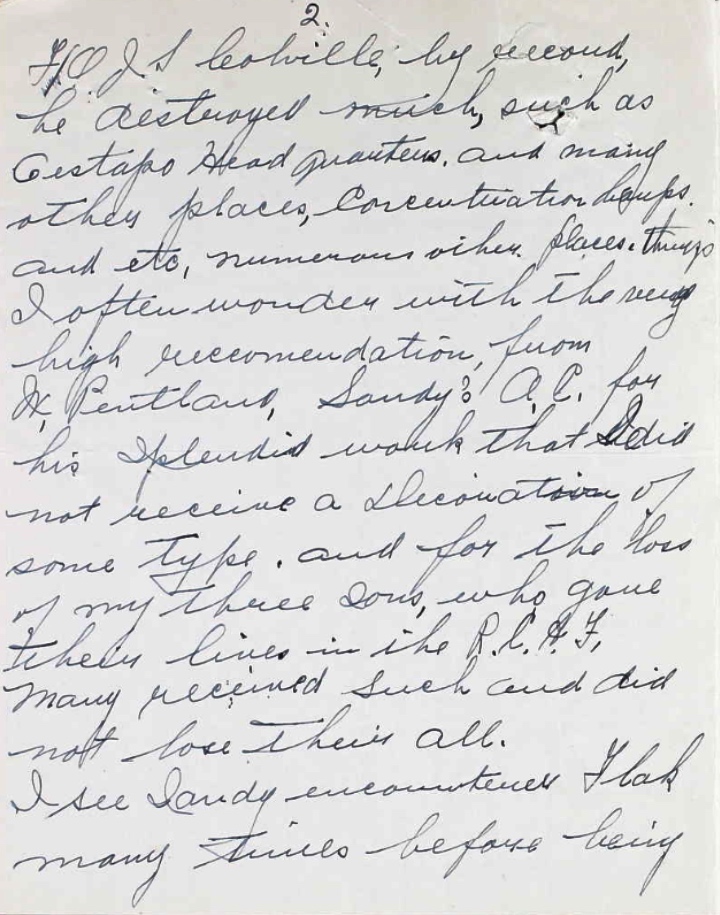 2.
F/O J S Colville, by record,
he destroyed much, such as
Gestapo Head quarters. and many
other places, Concentration Camps.
and etc, numerous other. places. things
I often wonder with the very
high reccomendation, from
W, Pentland, Sandy's A.C. for
his Splendid work that I did
not receive a Decoration of
some type. and for the loss
of my three Sons, who gave
their lives in the R.C.A.F,
Many received Such and did
not lose their all.
I see Sandy encountered Flak
many times before being